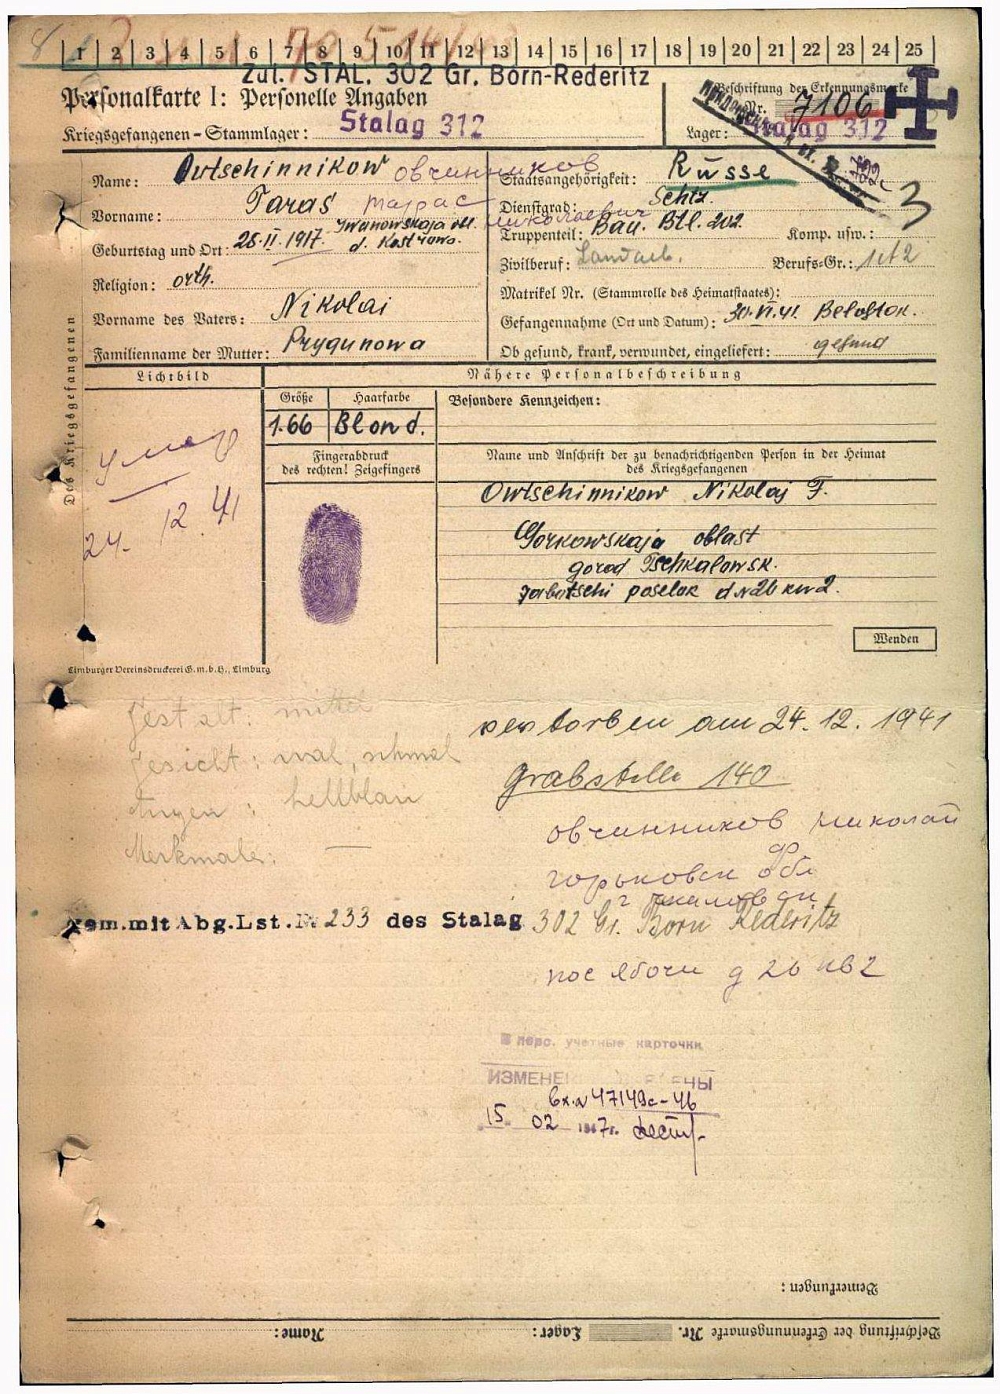 1 2 3 4 5 6 7 8 9 10 11 12 13 14 15 16 17 18 19 20 21 22 23 24 25
Zul. STAL. 302 Gr. Born-Rederitz
Personalkarte I: Personelle Angaben
Beschriftung der Erkennungsmarke
Nr. 7106
Kriegsgefangenen-Stammlager: Stalag 312
Lager: Stalag 312
3
Name: Owtschinnikow Овчинников
Staatsangehörigkeit: Russe
Vorname: Taras Тарас Николаевич
Dienstgrad: Schtz.
Geburtstag und Ort: 28.II.1917. Iwanowskaja obl. d. Kostrowo.
Truppenteil: Bau. Btl. 202. Komp. usw.:
Zivilberuf: Landarb. Berufs-Gr.: 1et2
Religion: orth.
Matrikel Nr. (Stammrolle des Heimatstaates):
Vorname des Vaters: Nikolai
Gefangennahme (Ort und Datum): 30.VI.41. Belostok.
Familienname der Mutter: Prygunowa
Ob gesund, krank, verwundet, eingeliefert: gesund
Des Kriegsgefangenen
Lichtbild
Nähere Personalbeschreibung
Größe Haarfarbe
Besondere Kennzeichen:
1.66 Blond.
Fingerabdruck
des rechten! Zeigefingers
Name und Anschrift der zu benachrichtigenden Person in der Heimat
des Kriegsgefangenen
Умер
24. 12 41
Owtschinnikow Nikolaj F.
Gorkowskaja oblast
gorod Tschkalowsk.
rabotschi poselok d N 26 kw 2.
Wenden
Limburger Vereinsdruckerei G.m.b.H., Limburg
Gestalt: mittel
Gesicht: oval, schmal
Augen: hellblau
Merkmale: —
verstorben am 24.12.1941
Grabstelle 140
Овчинников Николай
Ф
Горьковск обл
г Чкаловск
gem.mit Abg.Lst.Nr 233 des Stalag 302 Gr. Born Rederitz
пос д 26 кв 2
В перс. учетные карточки
ИЗМЕНЕНИЯ ВНЕСЕНЫ
Вх.N 47149с-46
15 02 1947г.
Bemerkungen:
Beschriftung der Erkennungsmarke Nr. Lager: Name: